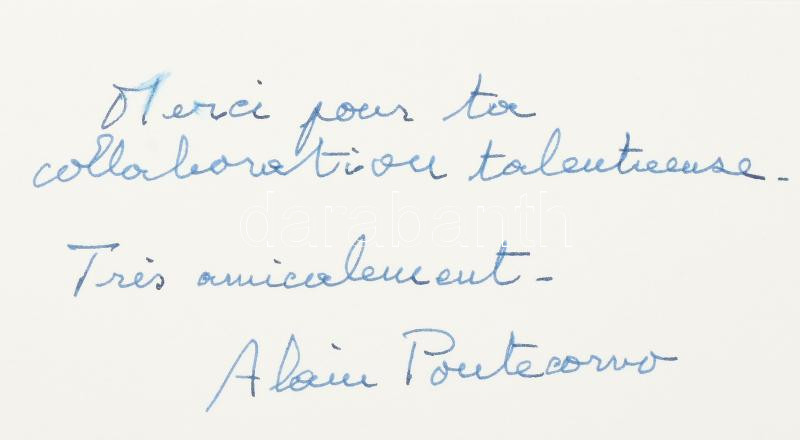 Merci pour ta
collaboration talentueuse.
darabanth
Très amicalement -
Alain Pontecorvo